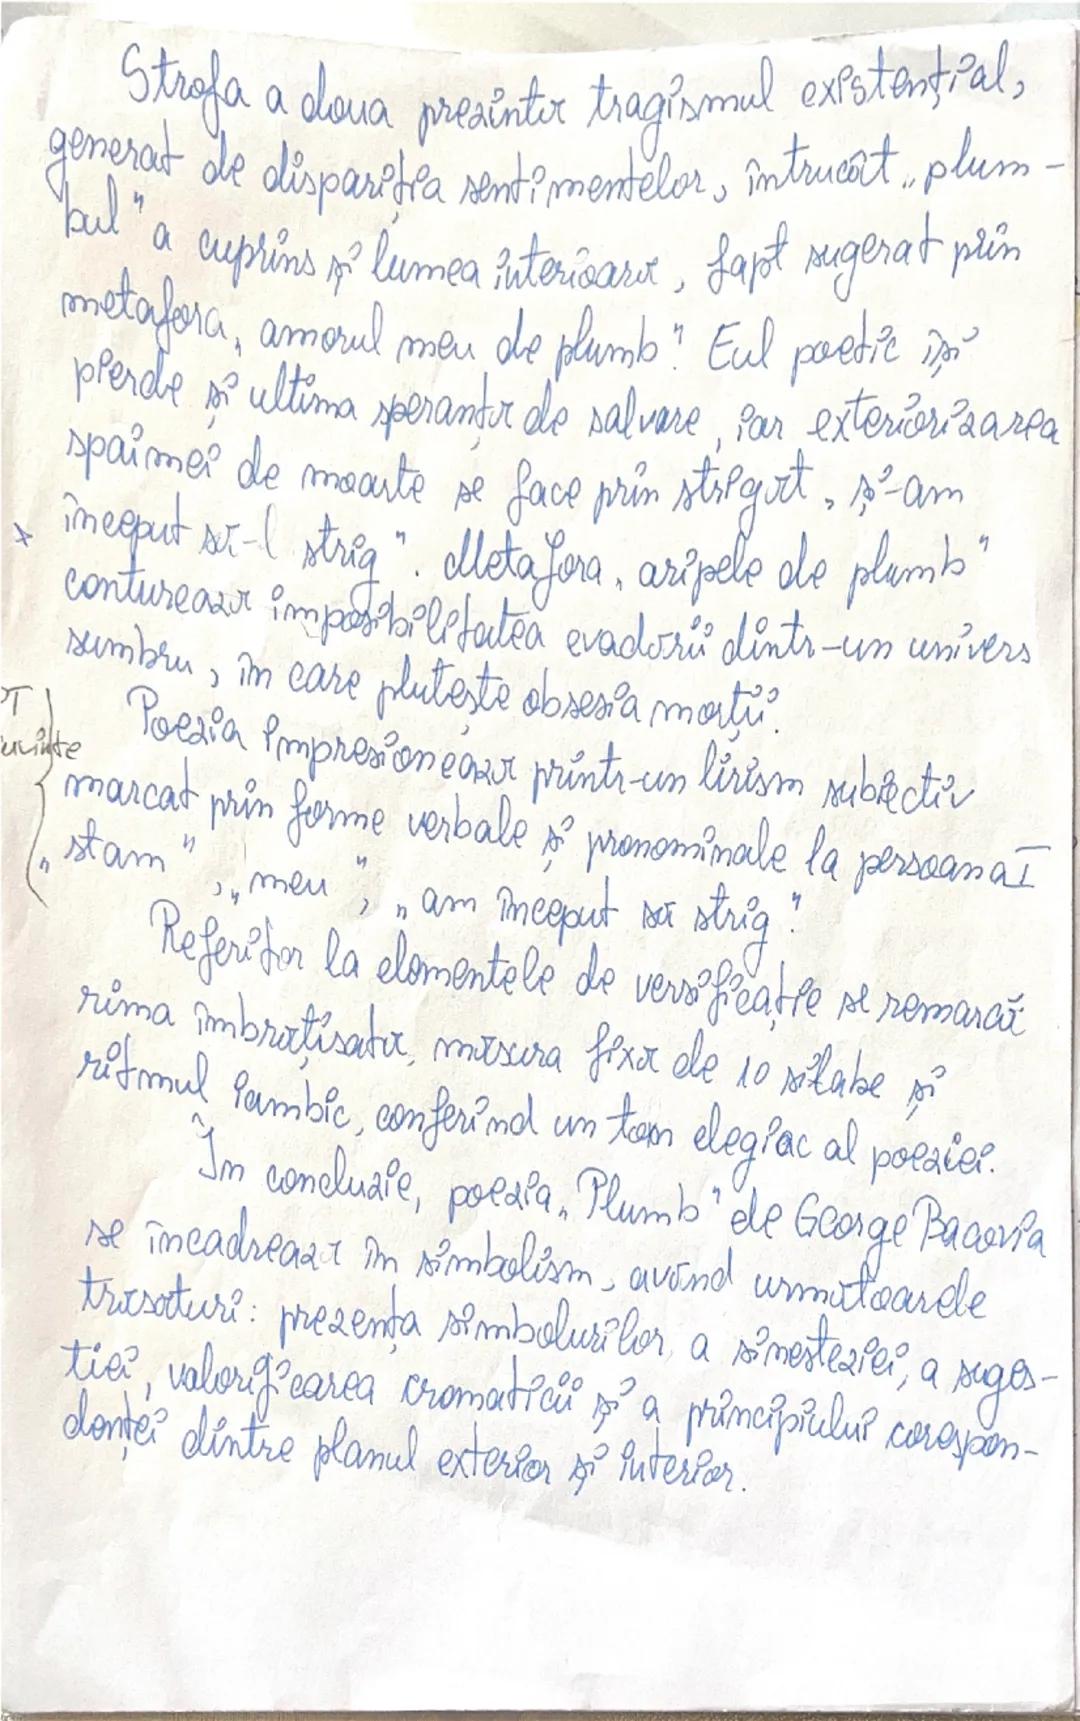 Strofa a doua prezintă tragismul existențial,
generat de dispariția sentimentelor, întrucât „plum-
bul" a cuprins și lumea interioară, fapt sugerat prin
metafora „amorul meu de plumb". Eul poetic își
pierde și ultima speranță de salvare, iar exteriorizarea
spaimei de moarte se face prin strigăt „și-am
început să-l strig". Metafora „aripele de plumb"
conturează imposibilitatea evadării dintr-un univers
sumbru, în care plutește obsesia morții.
Poezia impresionează printr-un lirism subiectiv
marcat prin forme verbale și pronominale la persoana I
„stam", „meu", „am început să strig".
Referitor la elementele de versificație se remarcă
rima îmbrățișată, măsura fixă de 10 silabe și
ritmul iambic, conferind un ton elegiac al poeziei.
În concluzie, poezia „Plumb" de George Bacovia
se încadrează în simbolism, având următoarele
trăsături: prezența simbolurilor, a sinesteziei, a suges-
tiei, valorificarea cromaticii și a principiului corespon-
denței dintre planul exterior și interior.